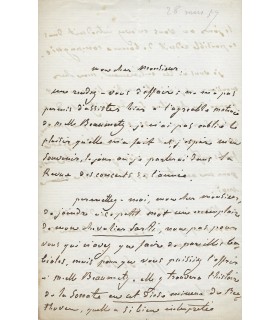 28 mars 57
mon cher monsieur
une rendez-vous d'affaires ne m'a pas
permis d'assister hier à l'agréable matinée
de melle Beaumetz. je n'ai pas oublié le
plaisir qu'elle m'a fait et j'espère m'en
souvenir, le jour où je parlerai dans la
Revue des concerts de l'année.
permettez-moi, mon cher monsieur,
de joindre à ce petit mot un exemplaire
de mon chevalier Sarti, non pas pour
vous qui n'avez que faire de pareilles
mais pour que vous puissiez l'offrir
à melle Beaumetz. elle y trouvera l'histoire
de la Sonate en ut dièse mineur de Bee
thoven, qu'elle a si bien interprétée